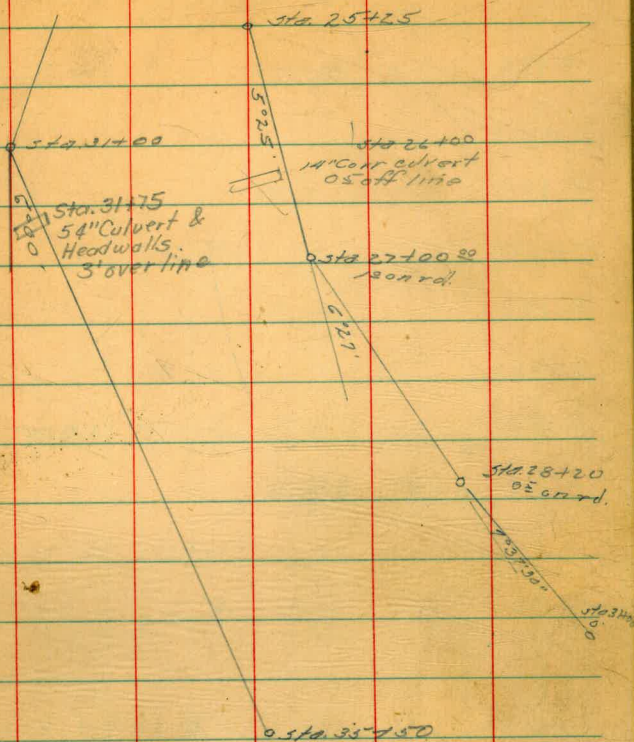 Sta. 25+25
5°25'
Sta 26+00
14" Corr culvert
0⁵ off line
Sta. 31+00
Sta. 31+75
54" Culvert &
Headwalls.
3' over line
Sta 27+00 ⁰⁰
on rd.
6°27'
Sta. 28+20
0⁵ on rd.
7°37'30"
Sta. 35+50